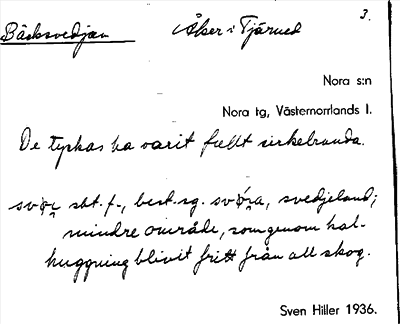 3.
Bäcksvedjan Åker i Tjärned
Nora s:n
Nora tg, Västernorrlands l.
De tyckas ha varit fullt cirkelrunda.
sbt. f., best. sg. svedjeland;
mindre område, som genom kal-
huggning blivit fritt från all skog.
Sven Hiller 1936.